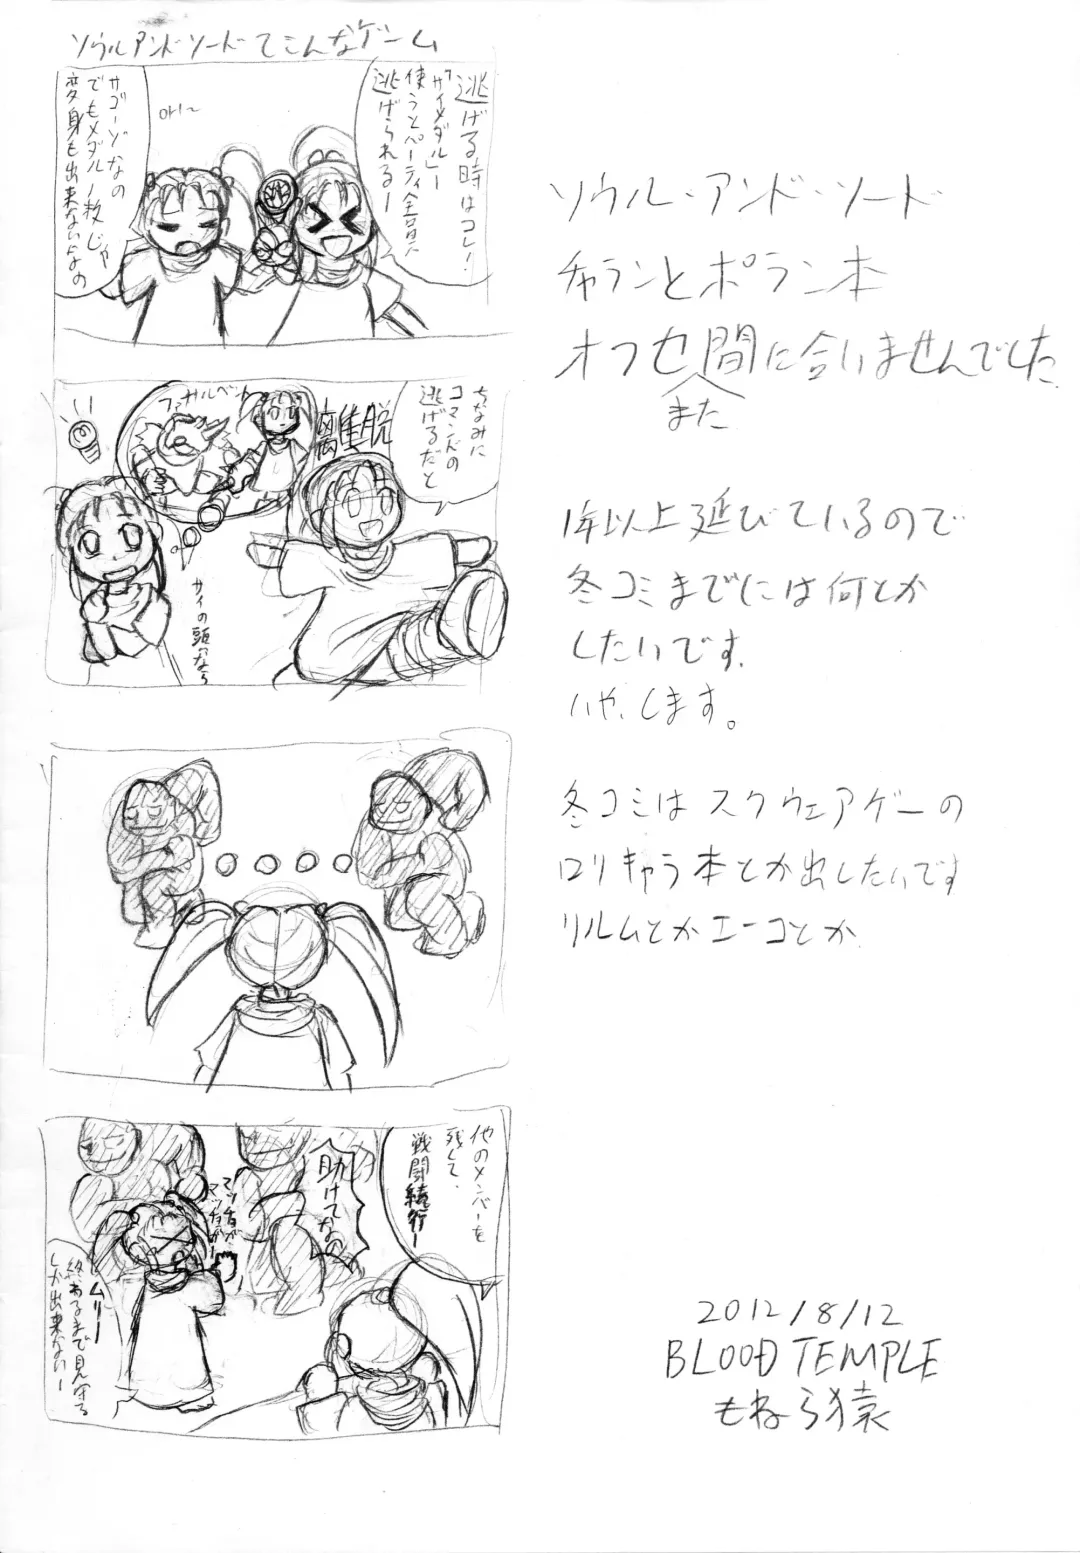 ソウルアンドソードてこんなゲーム
逃げる時はコレ!
「サイメダル」ー
使うとパーティ全員
逃げられるー
OH!~
サゴーゾなの
でもメダル1枚じゃ
変身も出来ないなの
ちなみに
コマンドの
逃げるだと
離脱
サイの頭なら
他のメンバーを
残して、
戦闘続行ー
助けてなの
マッチョが、
マッチョがー
ムリー
終わるまで見守る
しか出来ないー
ソウル・アンド・ソード
チャランとポラン本
オフセまた間に合いませんでした
1年以上延びているので
冬コミまでには何とか
したいです.
いや、します。
冬コミはスクウェアゲーの
ロリキャラ本とか出したいです
リルムとかエーコとか
2012/8/12
BLOOD TEMPLE
もねら猿